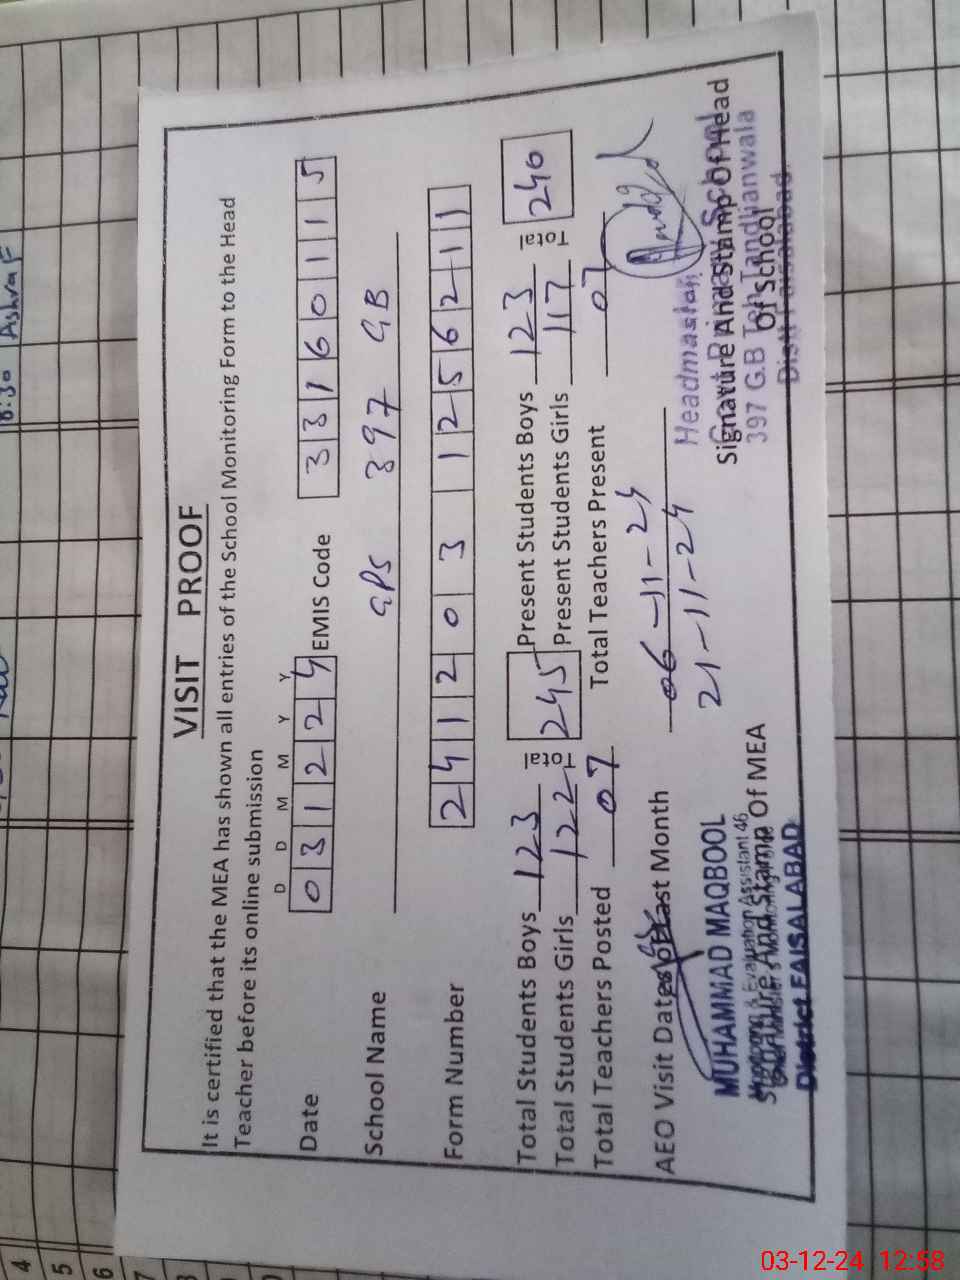 VISIT PROOF
It is certified that the MEA has shown all entries of the School Monitoring Form to the Head
Teacher before its online submission
D D M M Y Y
Date 0 3 1 2 2 4 EMIS Code 3 3 1 6 0 1 1 5
School Name GPS 397 GB
Form Number 2 4 1 2 0 3 1 2 5 6 2 1 1
Total Students Boys 123 Total 245 Present Students Boys 123 Total 240
Total Students Girls 122 Present Students Girls 117
Total Teachers Posted 07 Total Teachers Present 07
AEO Visit Dates of Last Month 06-11-24
21-11-24
MUHAMMAD MAQBOOL
Monitoring & Evaluation Assistant 46
Signature And Stamp Of MEA
District FAISALABAD
Headmaster
Signature And Stamp Of Head
Of School
397 G.B Teh Tandlianwala
Distt Faisalabad
8:30 Ashraf
4
5
6
7
03-12-24 12:58